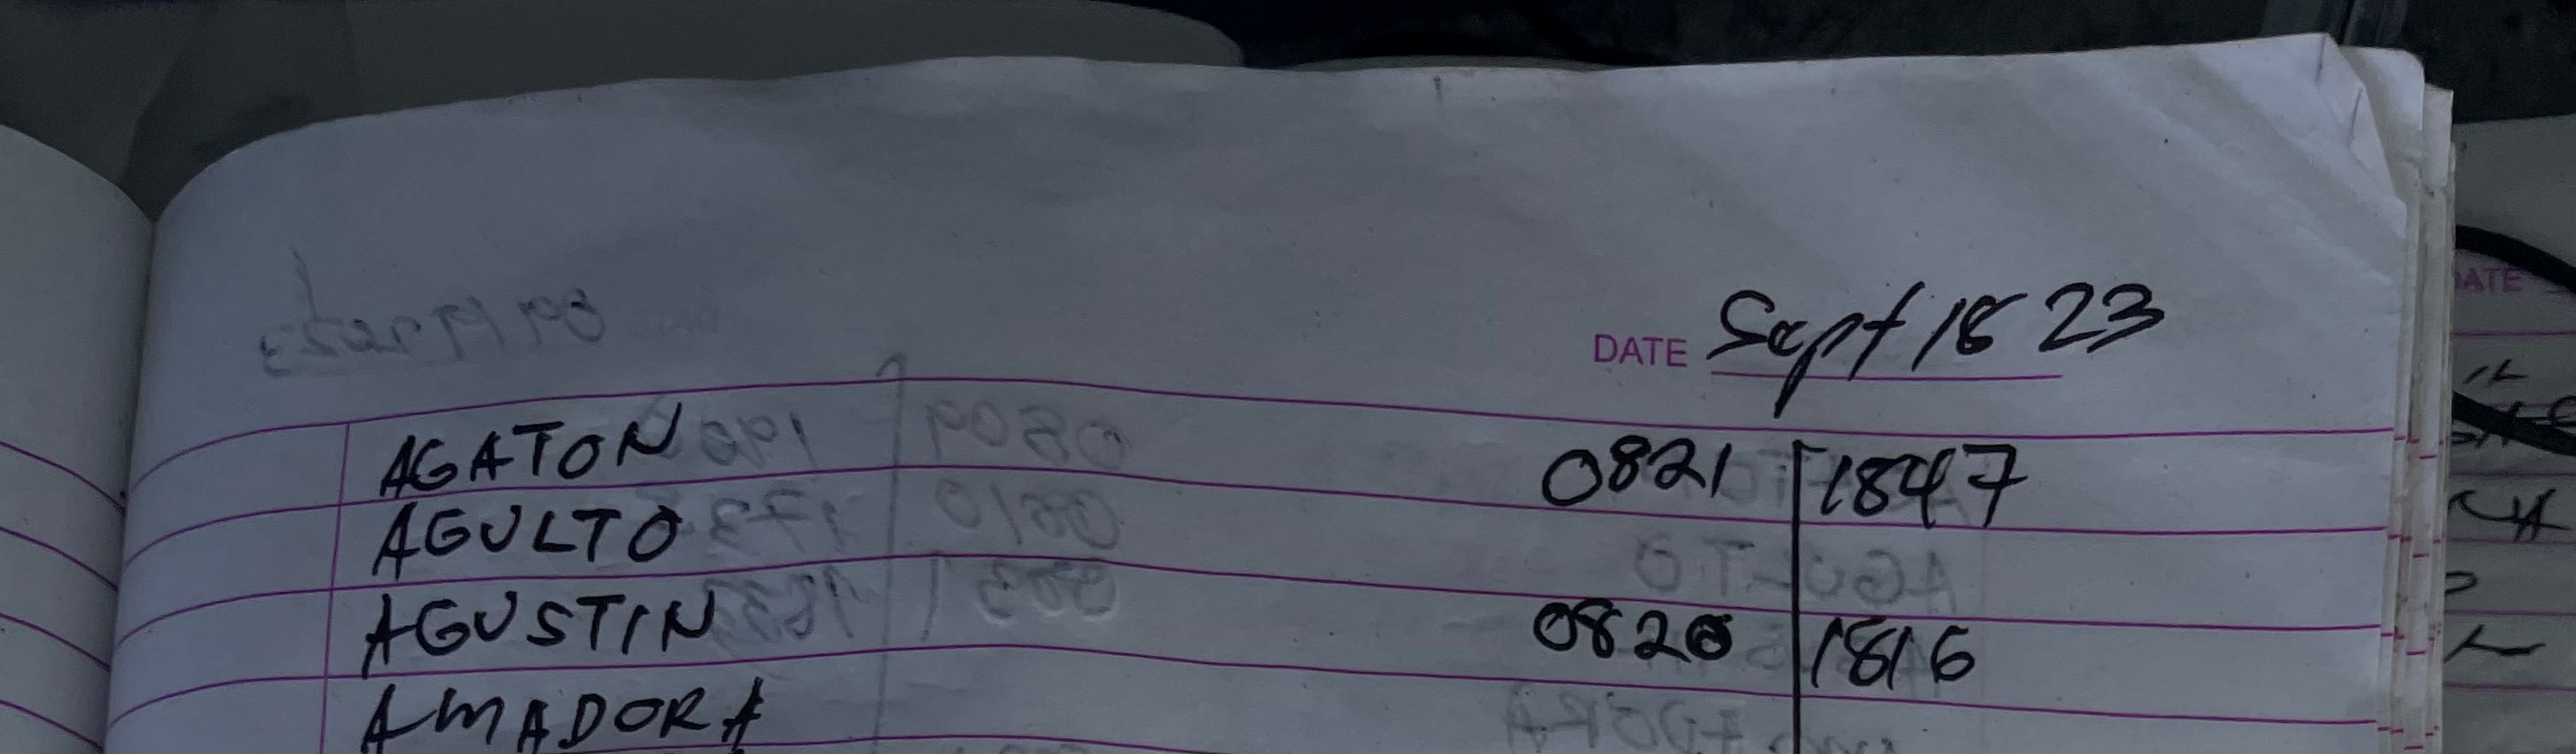 DATE Sept 18 23
AGATON 0821 1847
AGULTO
AGUSTIN 0820 1816
AMADORA